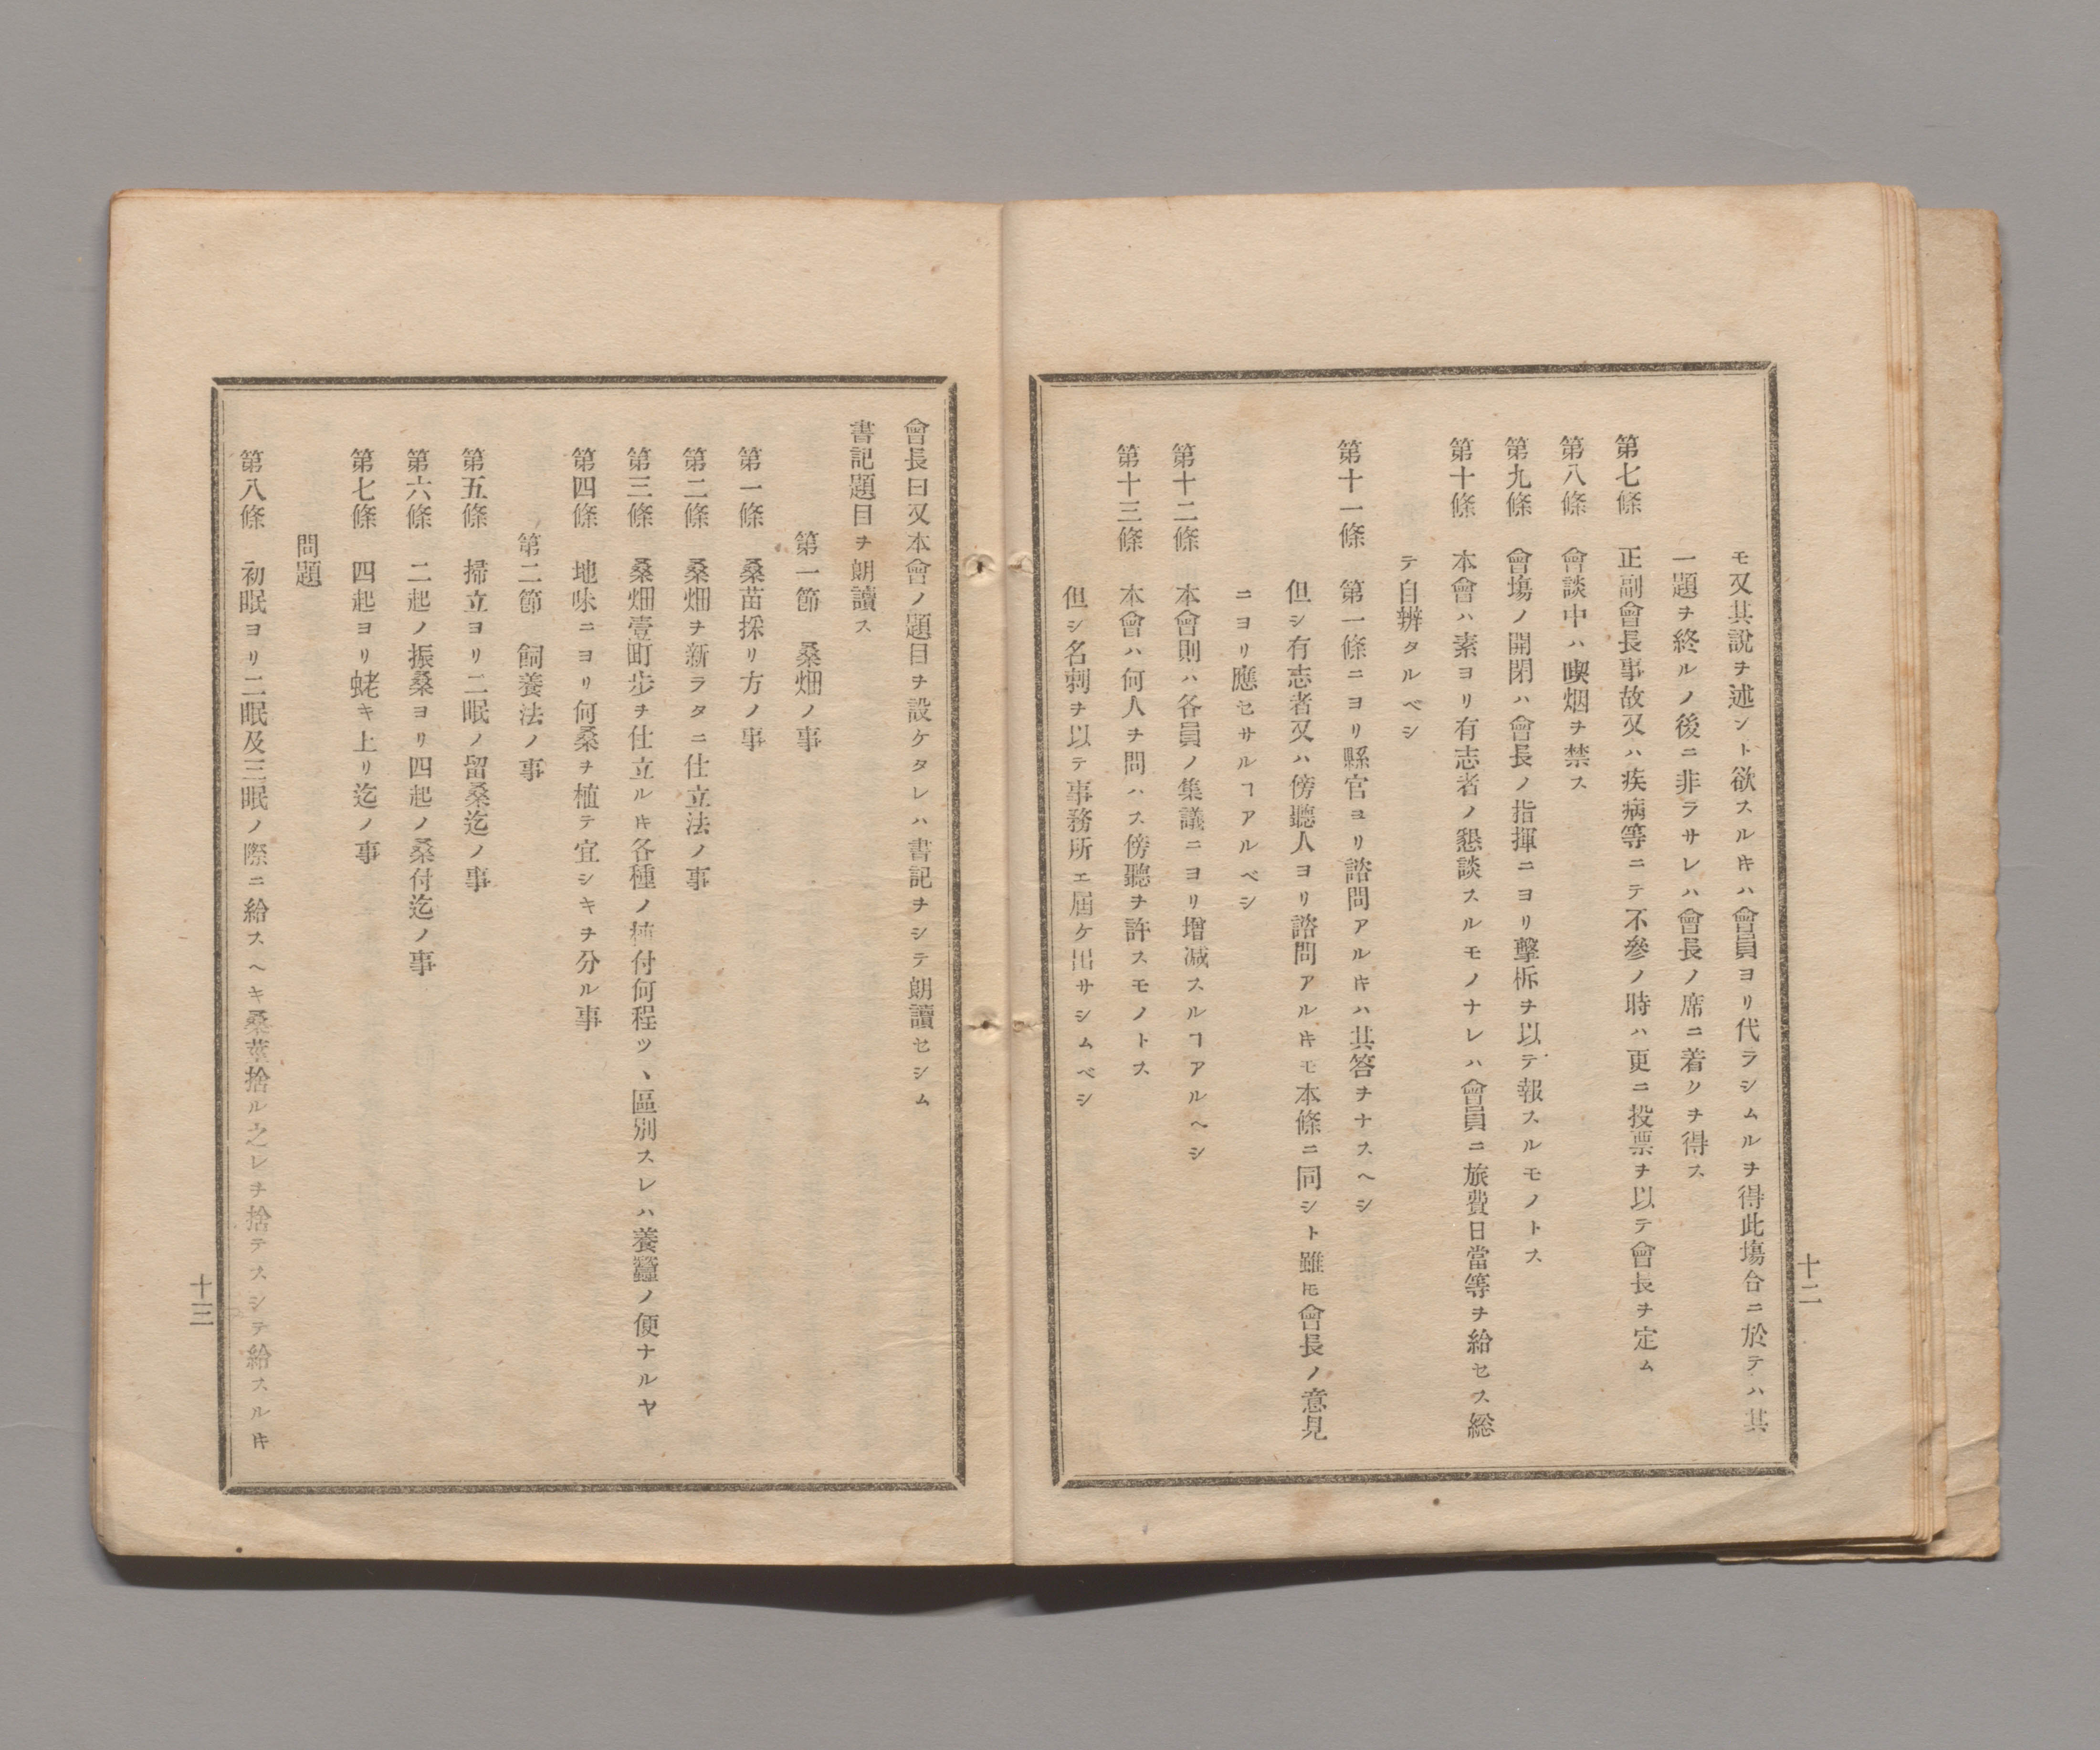 モ又其說ヲ述シト欲スル𪜈ハ會員ヨリ代ラシムルヲ得此塲合ニ於テハ其
一題ヲ終ルノ後ニ非ラサレハ會長ノ席ニ着クヲ得ス
第七條 正副會長事故又ハ疾病等ニテ不參ノ時ハ更ニ投票ヲ以テ會長ヲ定ム
第八條 會談中ハ喫烟ヲ禁ス
第九條 會塲ノ開閉ハ會長ノ指揮ニヨリ擊柝ヲ以テ報スルモノトス
第十條 本會ハ素ヨリ有志者ノ懇談スルモノナレハ會員ニ旅費日當等ヲ給セス総
テ自辨タルベシ
第十一條 第一條ニヨリ縣官ヨリ諮問アルキハ其答ヲナスヘシ
但シ有志者又ハ傍聽人ヨリ諮問アルキモ本條ニ同シト雖𪜈會長ノ意見
ニヨリ應セサルヿアルベシ
第十二條 本會則ハ各員ノ集議ニヨリ增減スルヿアルヘシ
第十三條 本會ハ何人ヲ問ハス傍聽ヲ許スモノトス
但シ名刺ヲ以テ事務所エ屆ケ出サシムベシ
十二
會長曰又本會ノ題目ヲ設ケタレハ書記ヲシテ朗讀セシム
書記題目ヲ朗讀ス
第一節 桑畑ノ事
第一條 桑苗採リ方ノ事
第二條 桑畑ヲ新ラタニ仕立法ノ事
第三條 桑畑壹町步ヲ仕立ルキ各種ノ植付何程ツヽ區別スレハ養蠶ノ便ナルヤ
第四條 地味ニヨリ何桑ヲ植テ宜シキヲ分ル事
第二節 飼養法ノ事
第五條 掃立ヨリ二眠ノ留桑迄ノ事
第六條 二起ノ振桑ヨリ四起ノ桑付迄ノ事
第七條 四起ヨリ蛯キ上リ迄ノ事
問題
第八條 初眠ヨリ二眠及三眠ノ際ニ給スヘキ桑葉捨ル之レヲ捨テスシテ給スルキ
十三